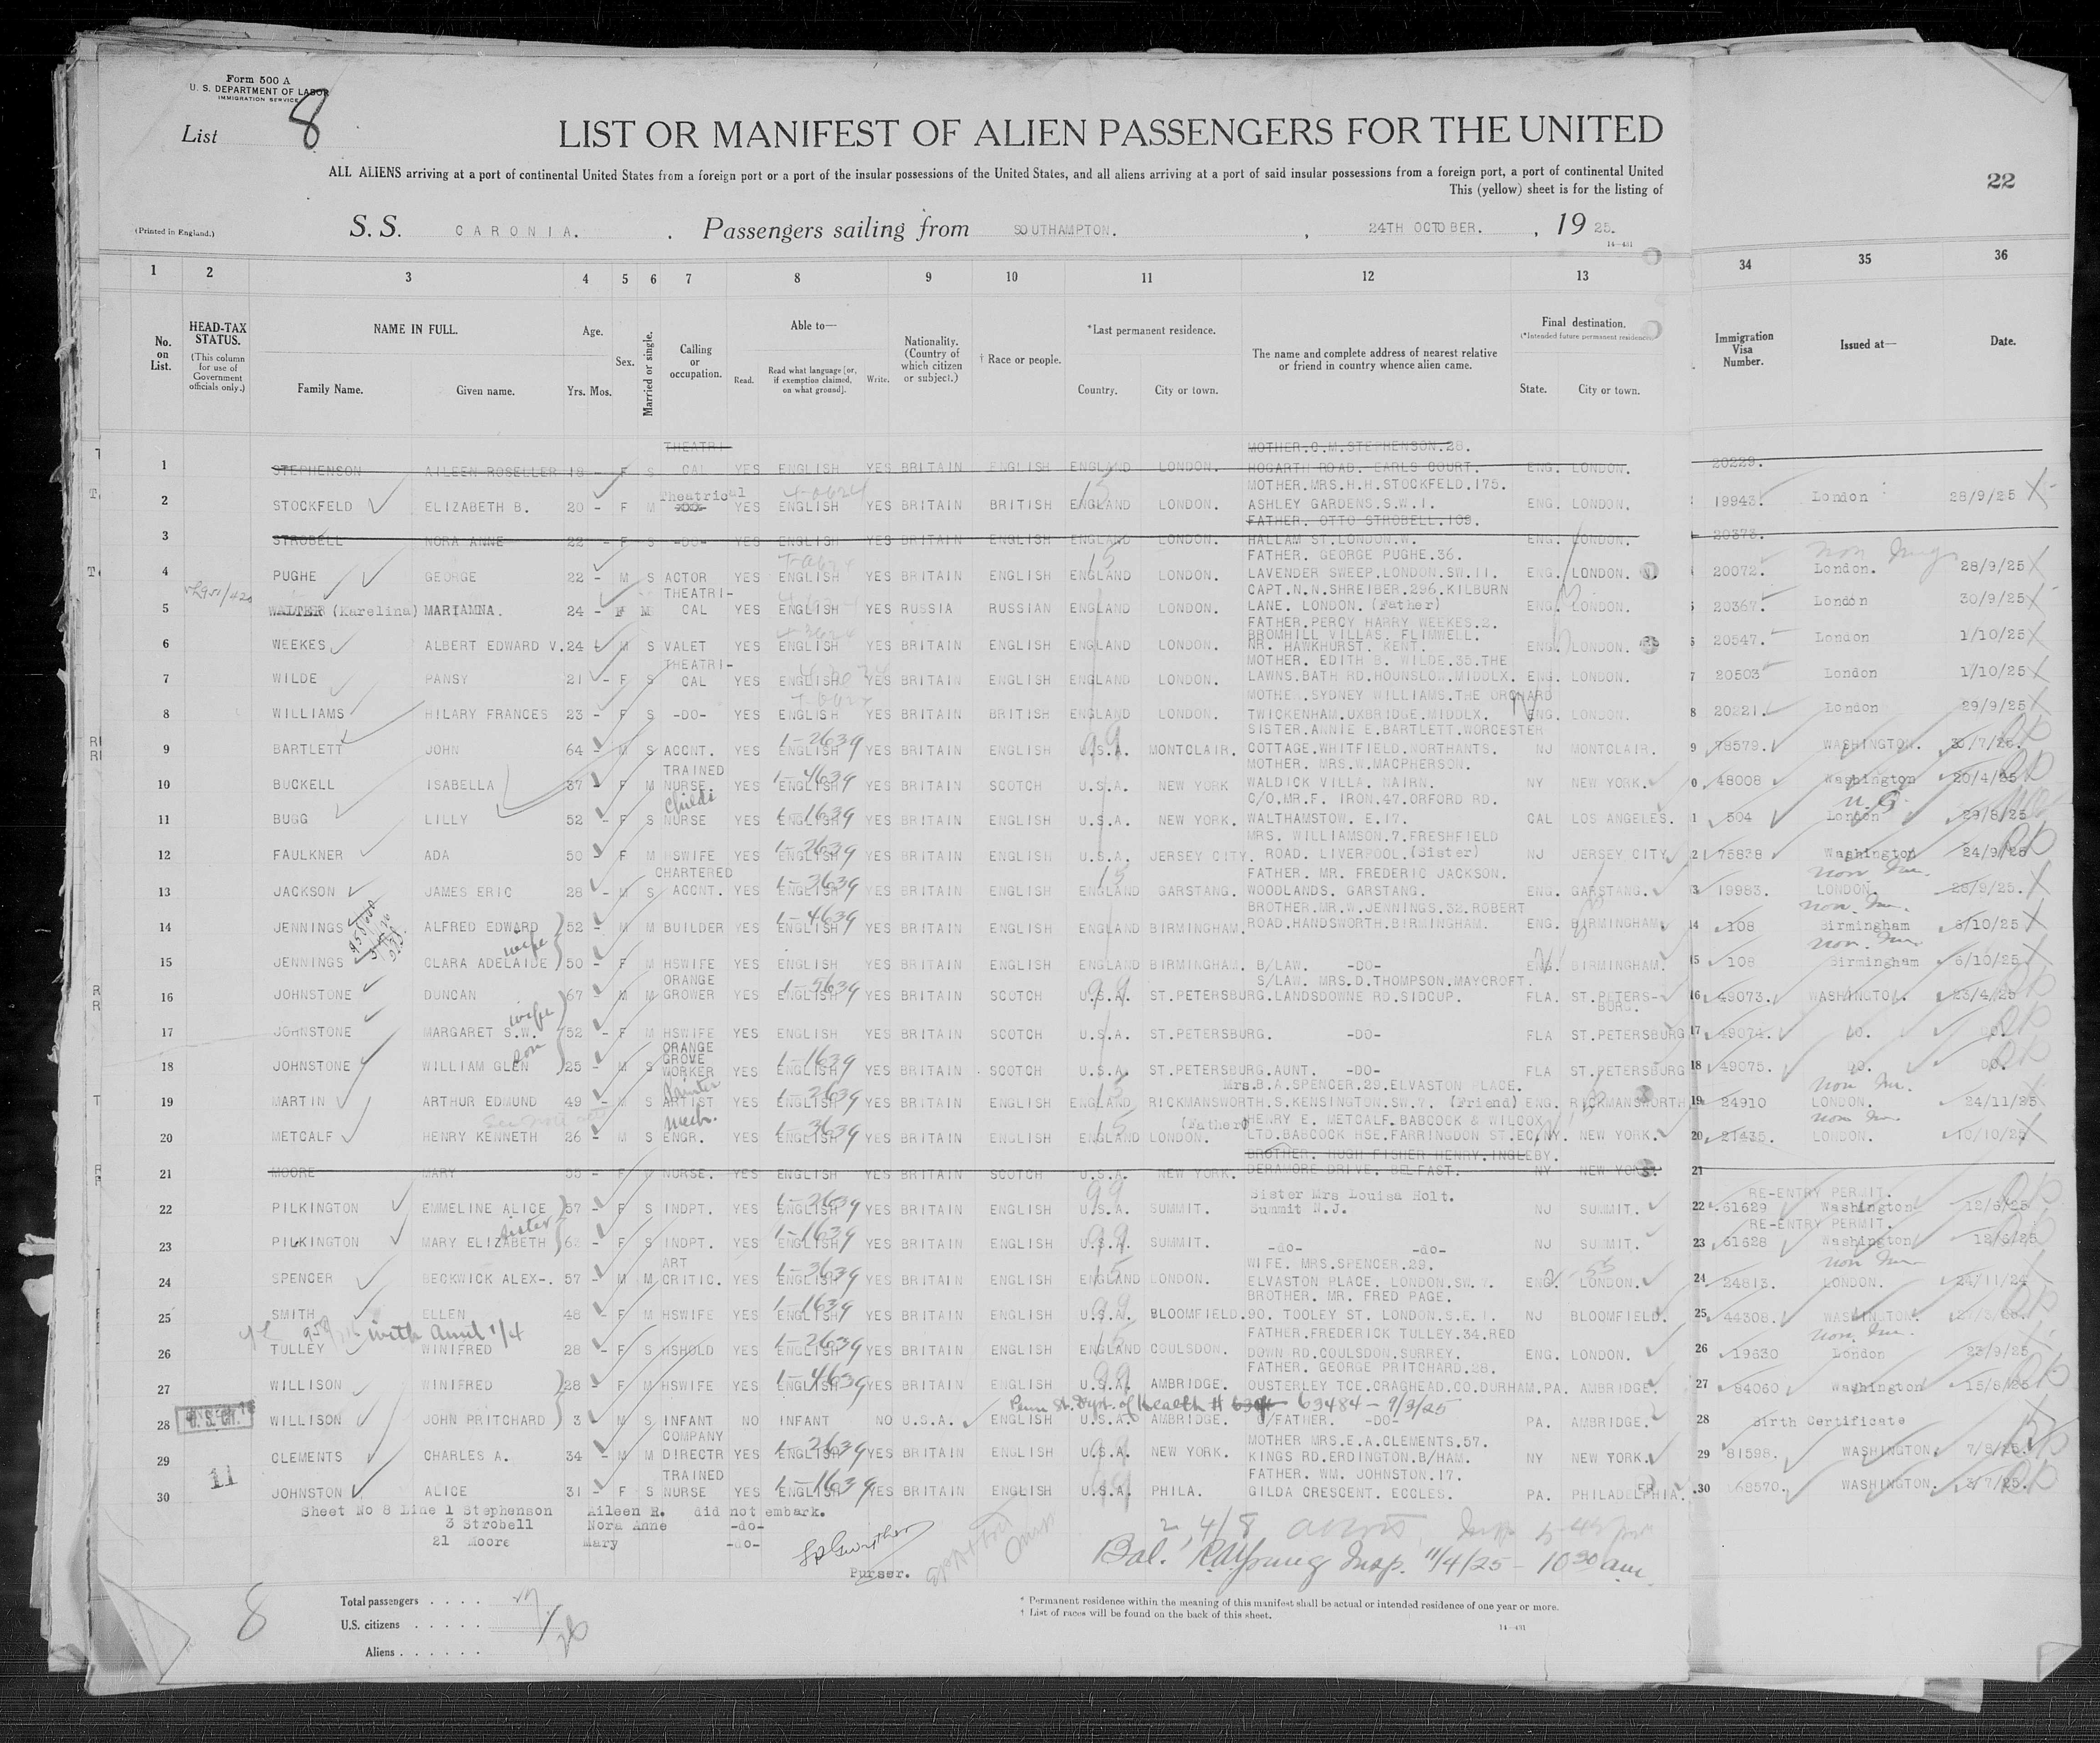 Form 500 A
U. S. DEPARTMENT OF LABOR
IMMIGRATION SERVICE
List 8
LIST OR MANIFEST OF ALIEN PASSENGERS FOR THE UNITED
ALL ALIENS arriving at a port of continental United States from a foreign port or a port of the insular possessions of the United States, and all aliens arriving at a port of said insular possessions from a foreign port, a port of continental United
This (yellow) sheet is for the listing of
22
(Printed in England.)
S. S. CARONIA. . Passengers sailing from SOUTHAMPTON. , 24TH OCTOBER. , 19 25.
14—431
1 2 3 4 5 6 7 8 9 10 11 12 13 34 35 36
No. on List.
HEAD-TAX STATUS.
(This column for use of Government officials only.)
NAME IN FULL.
Family Name. Given name.
Age.
Yrs. Mos.
Sex.
Married or single.
Calling or occupation.
Able to—
Read. Read what language [or, if exemption claimed, on what ground]. Write.
Nationality. (Country of which citizen or subject.)
† Race or people.
*Last permanent residence.
Country. City or town.
The name and complete address of nearest relative or friend in country whence alien came.
Final destination.
(*Intended future permanent residence.)
State. City or town.
Immigration Visa Number.
Issued at—
Date.
THEATRI- MOTHER.C.M.STEPHENSON.28.
1 STEPHENSON AILEEN ROSELLER 18 - F S CAL YES ENGLISH YES BRITAIN ENGLISH ENGLAND LONDON. HOGARTH ROAD. EARLS COURT. ENG. LONDON. 20229.
Theatrical MOTHER.MRS.H.H.STOCKFELD.175.
2 STOCKFELD ELIZABETH B. 20 - F M YES ENGLISH YES BRITAIN BRITISH ENGLAND LONDON. ASHLEY GARDENS.S.W.1. ENG. LONDON. 19943. London 28/9/25
FATHER. OTTO STROBELL.109.
3 STROBELL NORA ANNE 22 - F S -DO- YES ENGLISH YES BRITAIN ENGLISH ENGLAND LONDON. HALLAM ST.LONDON.W. ENG. LONDON. 20373.
FATHER. GEORGE PUGHE.36.
4 PUGHE GEORGE 22 - M S ACTOR YES ENGLISH YES BRITAIN ENGLISH ENGLAND LONDON. LAVENDER SWEEP.LONDON.SW.11. ENG. LONDON. 20072. London. 28/9/25
THEATRI- CAPT.N.N.SHREIBER.296.KILBURN
5 WALTER (Karelina) MARIAMNA. 24 - F M CAL YES ENGLISH YES RUSSIA RUSSIAN ENGLAND LONDON. LANE. LONDON. (Father) ENG. LONDON. 20367. London 30/9/25
FATHER.PERCY HARRY WEEKES.2.
BROMHILL VILLAS. FLIMWELL.
6 WEEKES ALBERT EDWARD V. 24 M S VALET YES ENGLISH YES BRITAIN ENGLISH ENGLAND LONDON. NR. HAWKHURST. KENT. ENG. LONDON. 20547. London 1/10/25
THEATRI- MOTHER. EDITH B. WILDE.35.THE
7 WILDE PANSY 21 - F S CAL YES ENGLISH YES BRITAIN ENGLISH ENGLAND LONDON. LAWNS.BATH RD.HOUNSLOW.MIDDLX. ENG. LONDON. 20503 London 1/10/25
MOTHER.SYDNEY WILLIAMS.THE ORCHARD
8 WILLIAMS HILARY FRANCES 23 - F S -DO- YES ENGLISH YES BRITAIN BRITISH ENGLAND LONDON. TWICKENHAM.UXBRIDGE.MIDDLX. ENG. LONDON. 20221. London 29/9/25
SISTER.ANNIE E.BARTLETT.WORCESTER
9 BARTLETT JOHN 64 M S ACCNT. YES ENGLISH YES BRITAIN ENGLISH U.S.A. MONTCLAIR. COTTAGE.WHITFIELD.NORTHANTS. NJ MONTCLAIR. 78579. WASHINGTON.
TRAINED MOTHER. MRS.W.MACPHERSON.
10 BUCKELL ISABELLA 37 F M NURSE. YES ENGLISH YES BRITAIN SCOTCH U.S.A. NEW YORK WALDICK VILLA. NAIRN. NY NEW YORK. 48008 Washington 20/4/25
Childs C/O.MR.F. IRON.47.ORFORD RD.
11 BUGG LILLY 52 - F S NURSE YES ENGLISH YES BRITAIN ENGLISH U.S.A. NEW YORK. WALTHAMSTOW. E.17. CAL LOS ANGELES. 504 London 29/8/25
MRS. WILLIAMSON.7.FRESHFIELD
12 FAULKNER ADA 50 F M HSWIFE YES ENGLISH YES BRITAIN ENGLISH U.S.A. JERSEY CITY. ROAD. LIVERPOOL.(Sister) NJ JERSEY CITY 75838 Washington 24/9/25
CHARTERED FATHER. MR. FREDERIC JACKSON.
13 JACKSON JAMES ERIC 28 - M S ACCNT. YES ENGLISH YES BRITAIN ENGLISH ENGLAND GARSTANG. WOODLANDS. GARSTANG. ENG. GARSTANG. 19983. LONDON. 28/9/25.
BROTHER.MR.W.JENNINGS.32.ROBERT
14 JENNINGS ALFRED EDWARD 52 - M M BUILDER YES ENGLISH YES BRITAIN ENGLISH ENGLAND BIRMINGHAM. ROAD.HANDSWORTH.BIRMINGHAM. ENG. BIRMINGHAM. 108 Birmingham 6/10/25
wife
15 JENNINGS CLARA ADELAIDE 50 - F M HSWIFE YES ENGLISH YES BRITAIN ENGLISH ENGLAND BIRMINGHAM. B/LAW. -DO- ENG. BIRMINGHAM. 108 Birmingham 6/10/25
ORANGE S/LAW. MRS.D.THOMPSON.MAYCROFT.
16 JOHNSTONE DUNCAN 67 - M M GROWER YES ENGLISH YES BRITAIN SCOTCH U.S.A. ST.PETERSBURG. LANDSDOWNE RD.SIDCUP. FLA. ST.PETERS-BURG. 49073. WASHINGTON. 23/4/25
wife
17 JOHNSTONE MARGARET S.W. 52 - F M HSWIFE YES ENGLISH YES BRITAIN SCOTCH U.S.A. ST.PETERSBURG. -DO- FLA ST.PETERSBURG 49074. DO. DO.
son ORANGE GROVE
18 JOHNSTONE WILLIAM GLEN 25 - M S WORKER YES ENGLISH YES BRITAIN SCOTCH U.S.A. ST.PETERSBURG. AUNT. -DO- FLA ST.PETERSBURG 49075. DO. DO.
Painter Mrs.B.A.SPENCER.29.ELVASTON PLACE.
19 MARTIN ARTHUR EDMUND 49 - M S ARTIST YES ENGLISH YES BRITAIN ENGLISH ENGLAND RICKMANSWORTH. S.KENSINGTON.SW.7. (Friend) ENG. RICKMANSWORTH 24910 LONDON. 24/11/25
Mech. (Father) HENRY E. METCALF.BABCOCK & WILCOX
20 METCALF HENRY KENNETH 26 - M S ENGR. YES ENGLISH YES BRITAIN ENGLISH ENGLAND LONDON. LTD.BABCOCK HSE.FARRINGDON ST.EC. NY. NEW YORK. 21435. LONDON. 10/10/25
BROTHER. HUGH FISHER HENRY.INGLEBY.
21 MOORE MARY 55 - F NURSE. YES ENGLISH YES BRITAIN SCOTCH U.S.A. NEW YORK. DERAMORE DRIVE. BELFAST. NY NEW YORK.
Sister Mrs Louisa Holt. RE-ENTRY PERMIT.
22 PILKINGTON EMMELINE ALICE 57 - F S INDPT. YES ENGLISH YES BRITAIN ENGLISH U.S.A. SUMMIT. Summit N.J. NJ SUMMIT. 61629 Washington 12/6/25
sister RE-ENTRY PERMIT.
23 PILKINGTON MARY ELIZABETH F S INDPT. YES ENGLISH YES BRITAIN ENGLISH U.S.A. SUMMIT. -do- -do- NJ SUMMIT. 61628 Washington 12/6/25
ART WIFE. MRS.SPENCER.29.
24 SPENCER BECKWICK ALEX-. 57 - M M CRITIC. YES ENGLISH YES BRITAIN ENGLISH ENGLAND LONDON. ELVASTON PLACE. LONDON.SW.7. ENG. LONDON. 24813. LONDON. 24/11/24
BROTHER. MR. FRED PAGE.
25 SMITH ELLEN 48 - F M HSWIFE YES ENGLISH YES BRITAIN ENGLISH U.S.A. BLOOMFIELD. 90. TOOLEY ST. LONDON.S.E.1. NJ BLOOMFIELD. 44308. WASHINGTON.
with Aunt 1/4 FATHER.FREDERICK TULLEY.34.RED
26 TULLEY WINIFRED 28 - F S HSHOLD YES ENGLISH YES BRITAIN ENGLISH ENGLAND COULSDON. DOWN RD.COULSDON.SURREY. ENG. LONDON. 19630 London 23/9/25
FATHER. GEORGE PRITCHARD.28.
27 WILLISON WINIFRED 28 - F M HSWIFE YES ENGLISH YES BRITAIN ENGLISH U.S.A. AMBRIDGE. OUSTERLEY TCE.CRAGHEAD.CO.DURHAM. PA. AMBRIDGE. 84060 Washington 15/8/25
Penn St. Dept. of Health # 63484 - 9/3/25
28 WILLISON JOHN PRITCHARD 3 M S INFANT NO INFANT NO U.S.A. ENGLISH U.S.A. AMBRIDGE. G/FATHER. -DO- PA. AMBRIDGE. Birth Certificate
COMPANY MOTHER MRS.E.A.CLEMENTS.57.
29 CLEMENTS CHARLES A. 34 - M M DIRECTR YES ENGLISH YES BRITAIN ENGLISH U.S.A. NEW YORK. KINGS RD.ERDINGTON.B/HAM. NY NEW YORK. 81598. WASHINGTON. 7/8/25.
11 TRAINED FATHER. WM. JOHNSTON.17.
30 JOHNSTON ALICE 31 - F S NURSE YES ENGLISH YES BRITAIN ENGLISH U.S.A. PHILA. GILDA CRESCENT. ECCLES. PA. PHILADELPHIA. 68570. WASHINGTON. 3/7/25
Sheet No 8 Line 1 Stephenson Aileen R. did not embark.
3 Strobell Nora Anne -do-
21 Moore Mary -do-
Purser.
Bal. Young Insp. 11/4/25 - 10 30 am.
8
Total passengers . . . .
U.S. citizens . . . . . 1
Aliens . . . . . . 26
* Permanent residence within the meaning of this manifest shall be actual or intended residence of one year or more.
† List of races will be found on the back of this sheet.
14—431